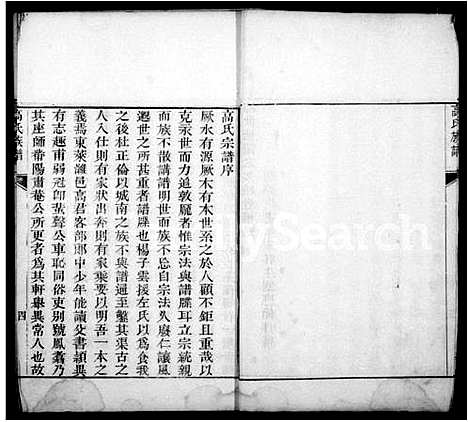 高氏族譜
高氏宗譜序
厥水有源厥木有本世系之於人顧不鉅且重哉以
克示世而力追敦龐者惟宗法與譜牒耳立宗統親
而族不散講譜明世而族不忘自宗法久廢仁讓風
邈世之所甚重者譜牒也楊子雲援左氏以為食我
之後杜正倫以城南之族不與譜通至鑿其渠古之
人入仕則有家狀出奔則有家乘要以明吾一本之
義焉東萊譙邑高君客部郎中少年能讀父書穎異
有志趣甫弱冠即蜚聲公車恥同俗吏別號鳳翥乃
其座師番陽肅菴公所更者為其軒舉異常人也故
高氏族譜
四
MySearch